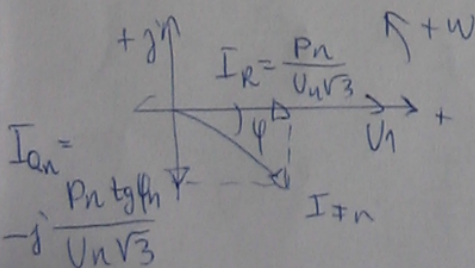 +j
+ω
I_R = Pn / Un√3
φ
U1
+
I_Qn =
-j Pn tgφn / Un√3
I_Fn